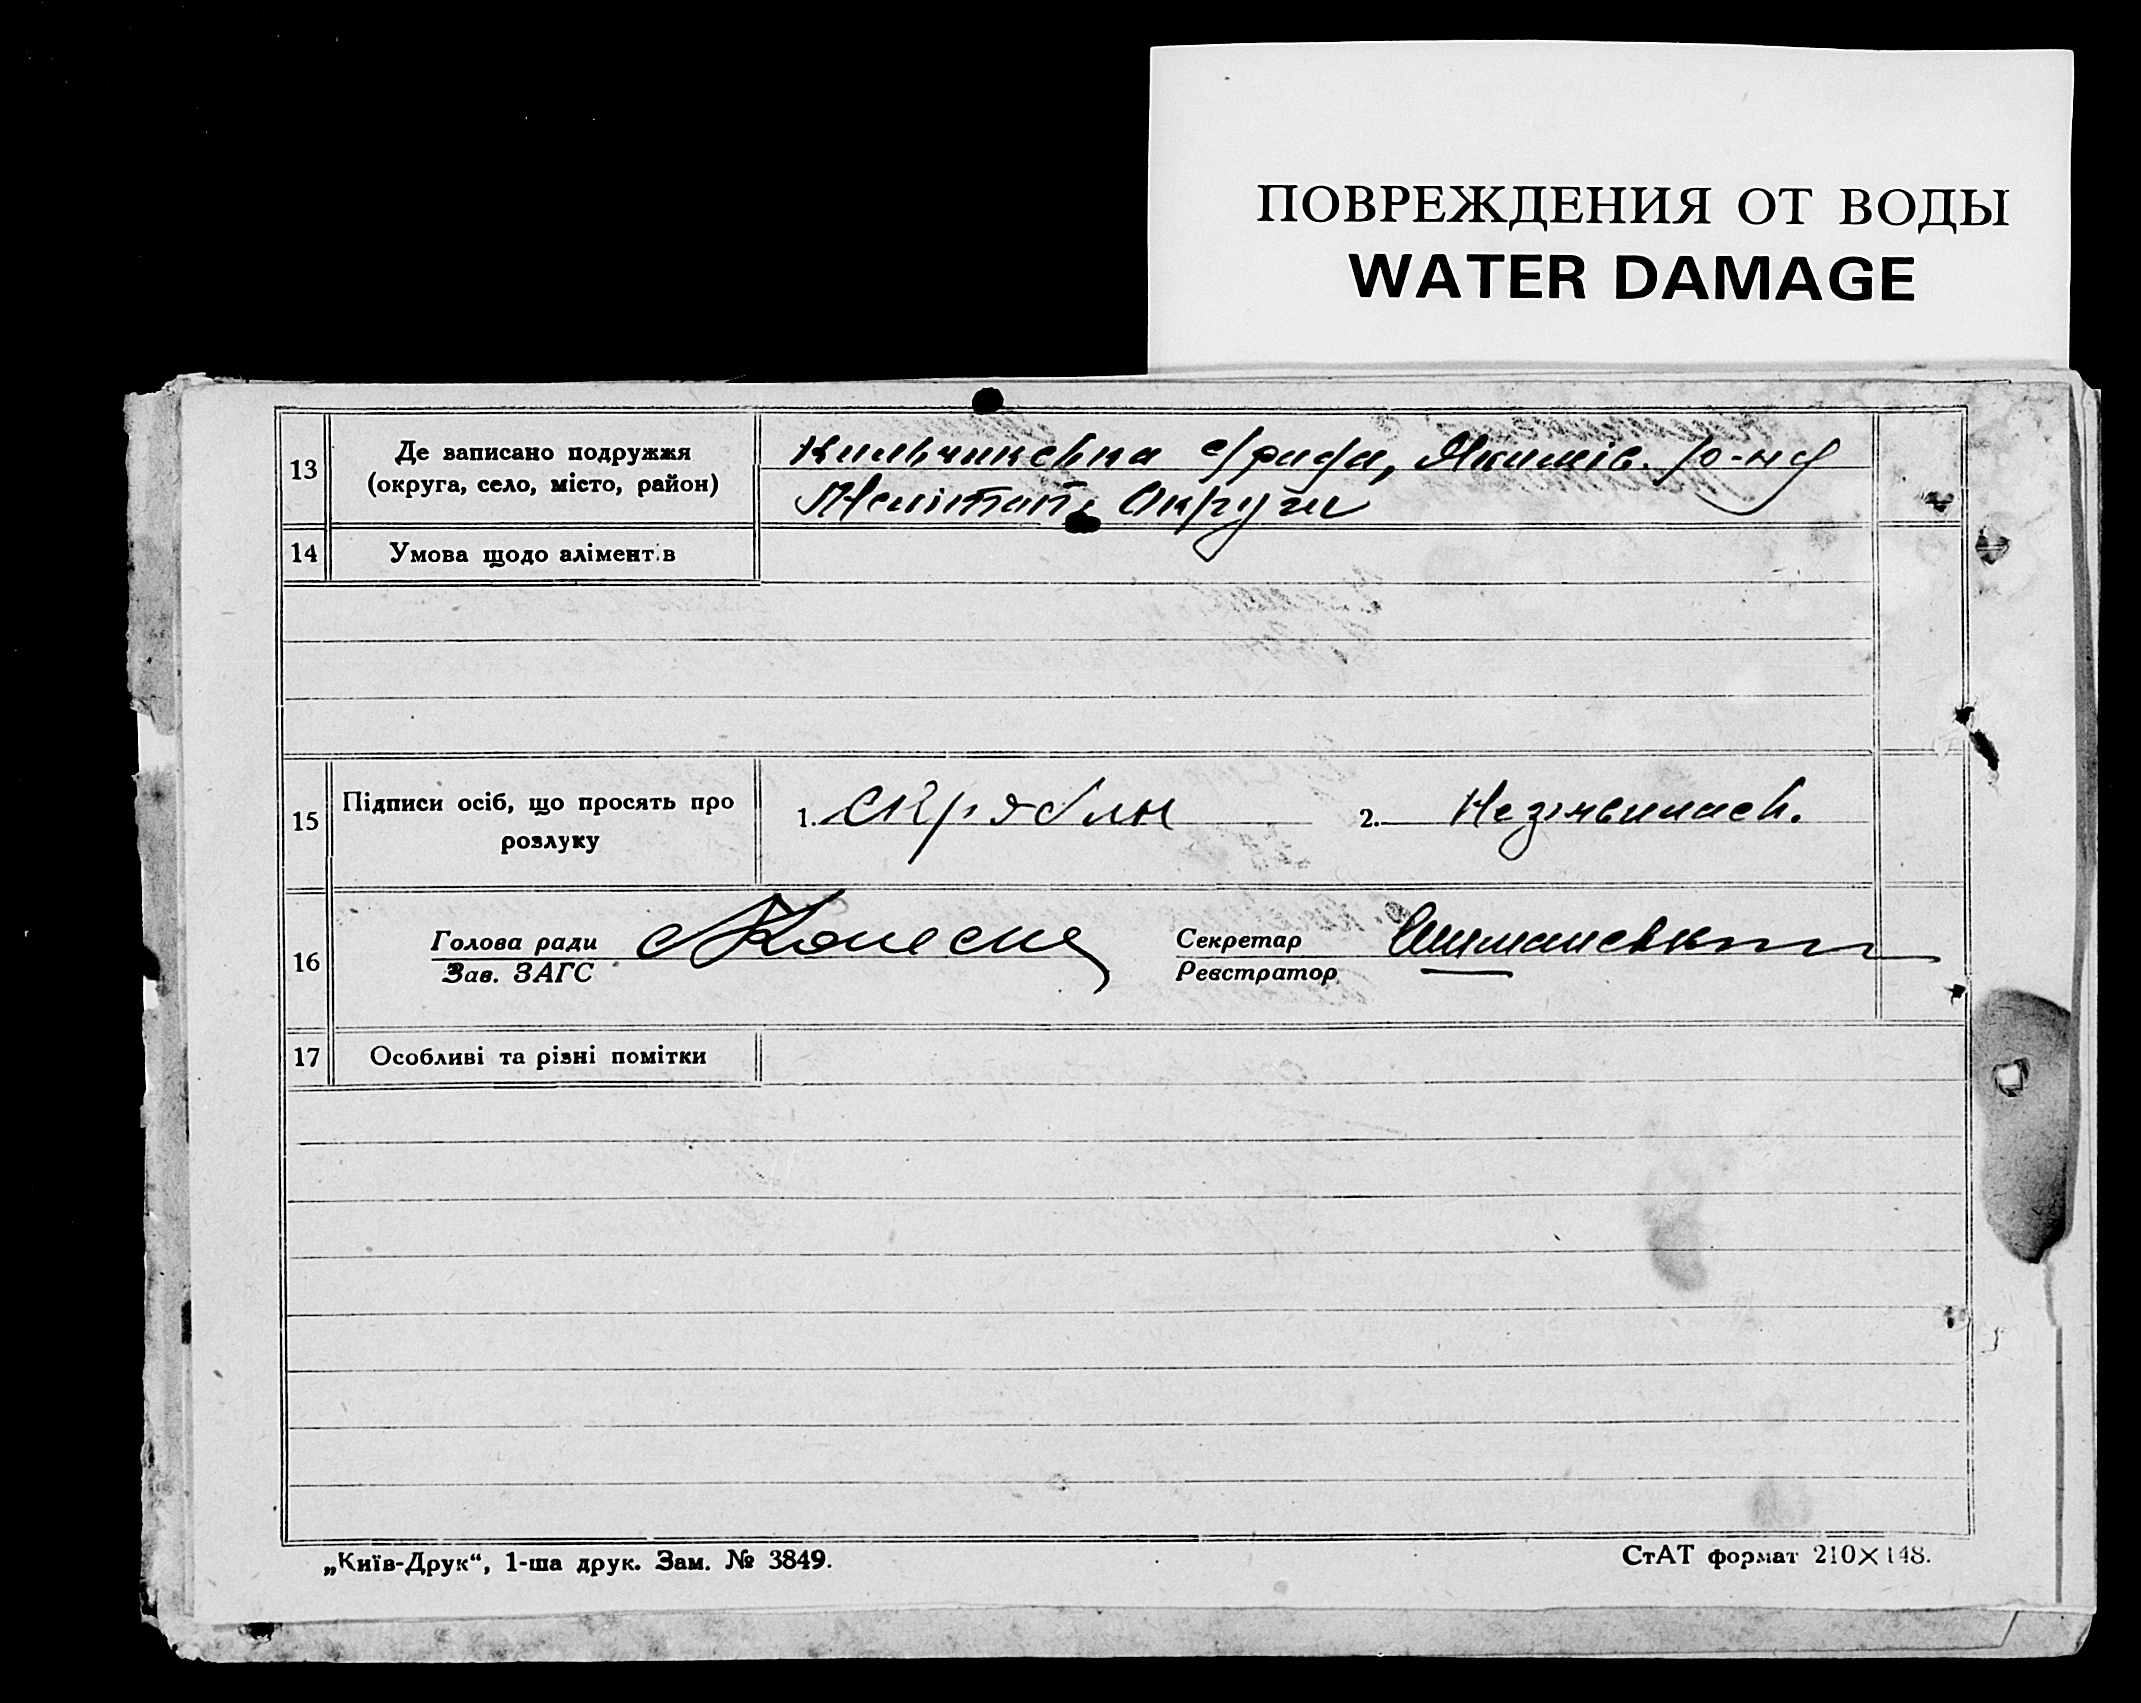 ПОВРЕЖДЕНИЯ ОТ ВОДЫ
WATER DAMAGE
13
Де записано подружжя
(округа, село, місто, район)
с/рада, Якимів. р-ну
Меліtоп. Округи
14
Умова щодо алімент.в
15
Підписи осіб, що просять про
розлуку
1. Скрябин
2.
16
Голова ради
Зав. ЗАГС
Секретар
Реєстратор
17
Особливі та різні помітки
„Київ-Друк“, 1-ша друк. Зам. № 3849.
СтАТ формат 210×148.